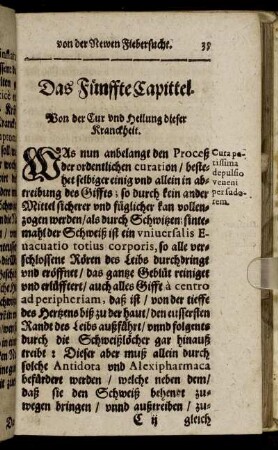 von der Newen Fiebersucht. 35
Das Fünffte Capittel.
Von der Cur vnd Heilung dieser
Kranckheit.
WAs nun anbelangt den Proceß
der ordentlichen curation / beste-
het selbiger einig vnd allein in ab-
treibung des Giffts: so durch kein ander
Mittel sicherer vnd füglicher kan vollen-
zogen werden / als durch Schwitzen: sinte-
mahl der Schweiß ist ein vniuersalis E-
uacuatio totius corporis, so alle ver-
schlossene Rören des Leibs durchdringt
vnd eröffnet / das gantze Geblüt reiniget
vnd erlüfftert / auch alles Gifft à centro
ad peripheriam, daß ist / von der tieffe
des Hertzens biß zu der haut / den eussersten
Randt des Leibs außführt / vnnd folgents
durch die Schweißlöcher gar hinauß
treibt: Dieser aber muß allein durch
solche Antidota vnd Alexipharmaca
befürdert werden / welche neben dem /
daß sie den Schweiß behent zu-
wegen bringen / vnnd außtreiben / zu-
C ij gleich
Cura po-
tissima
depulsio
veneni
per sudo-
rem.